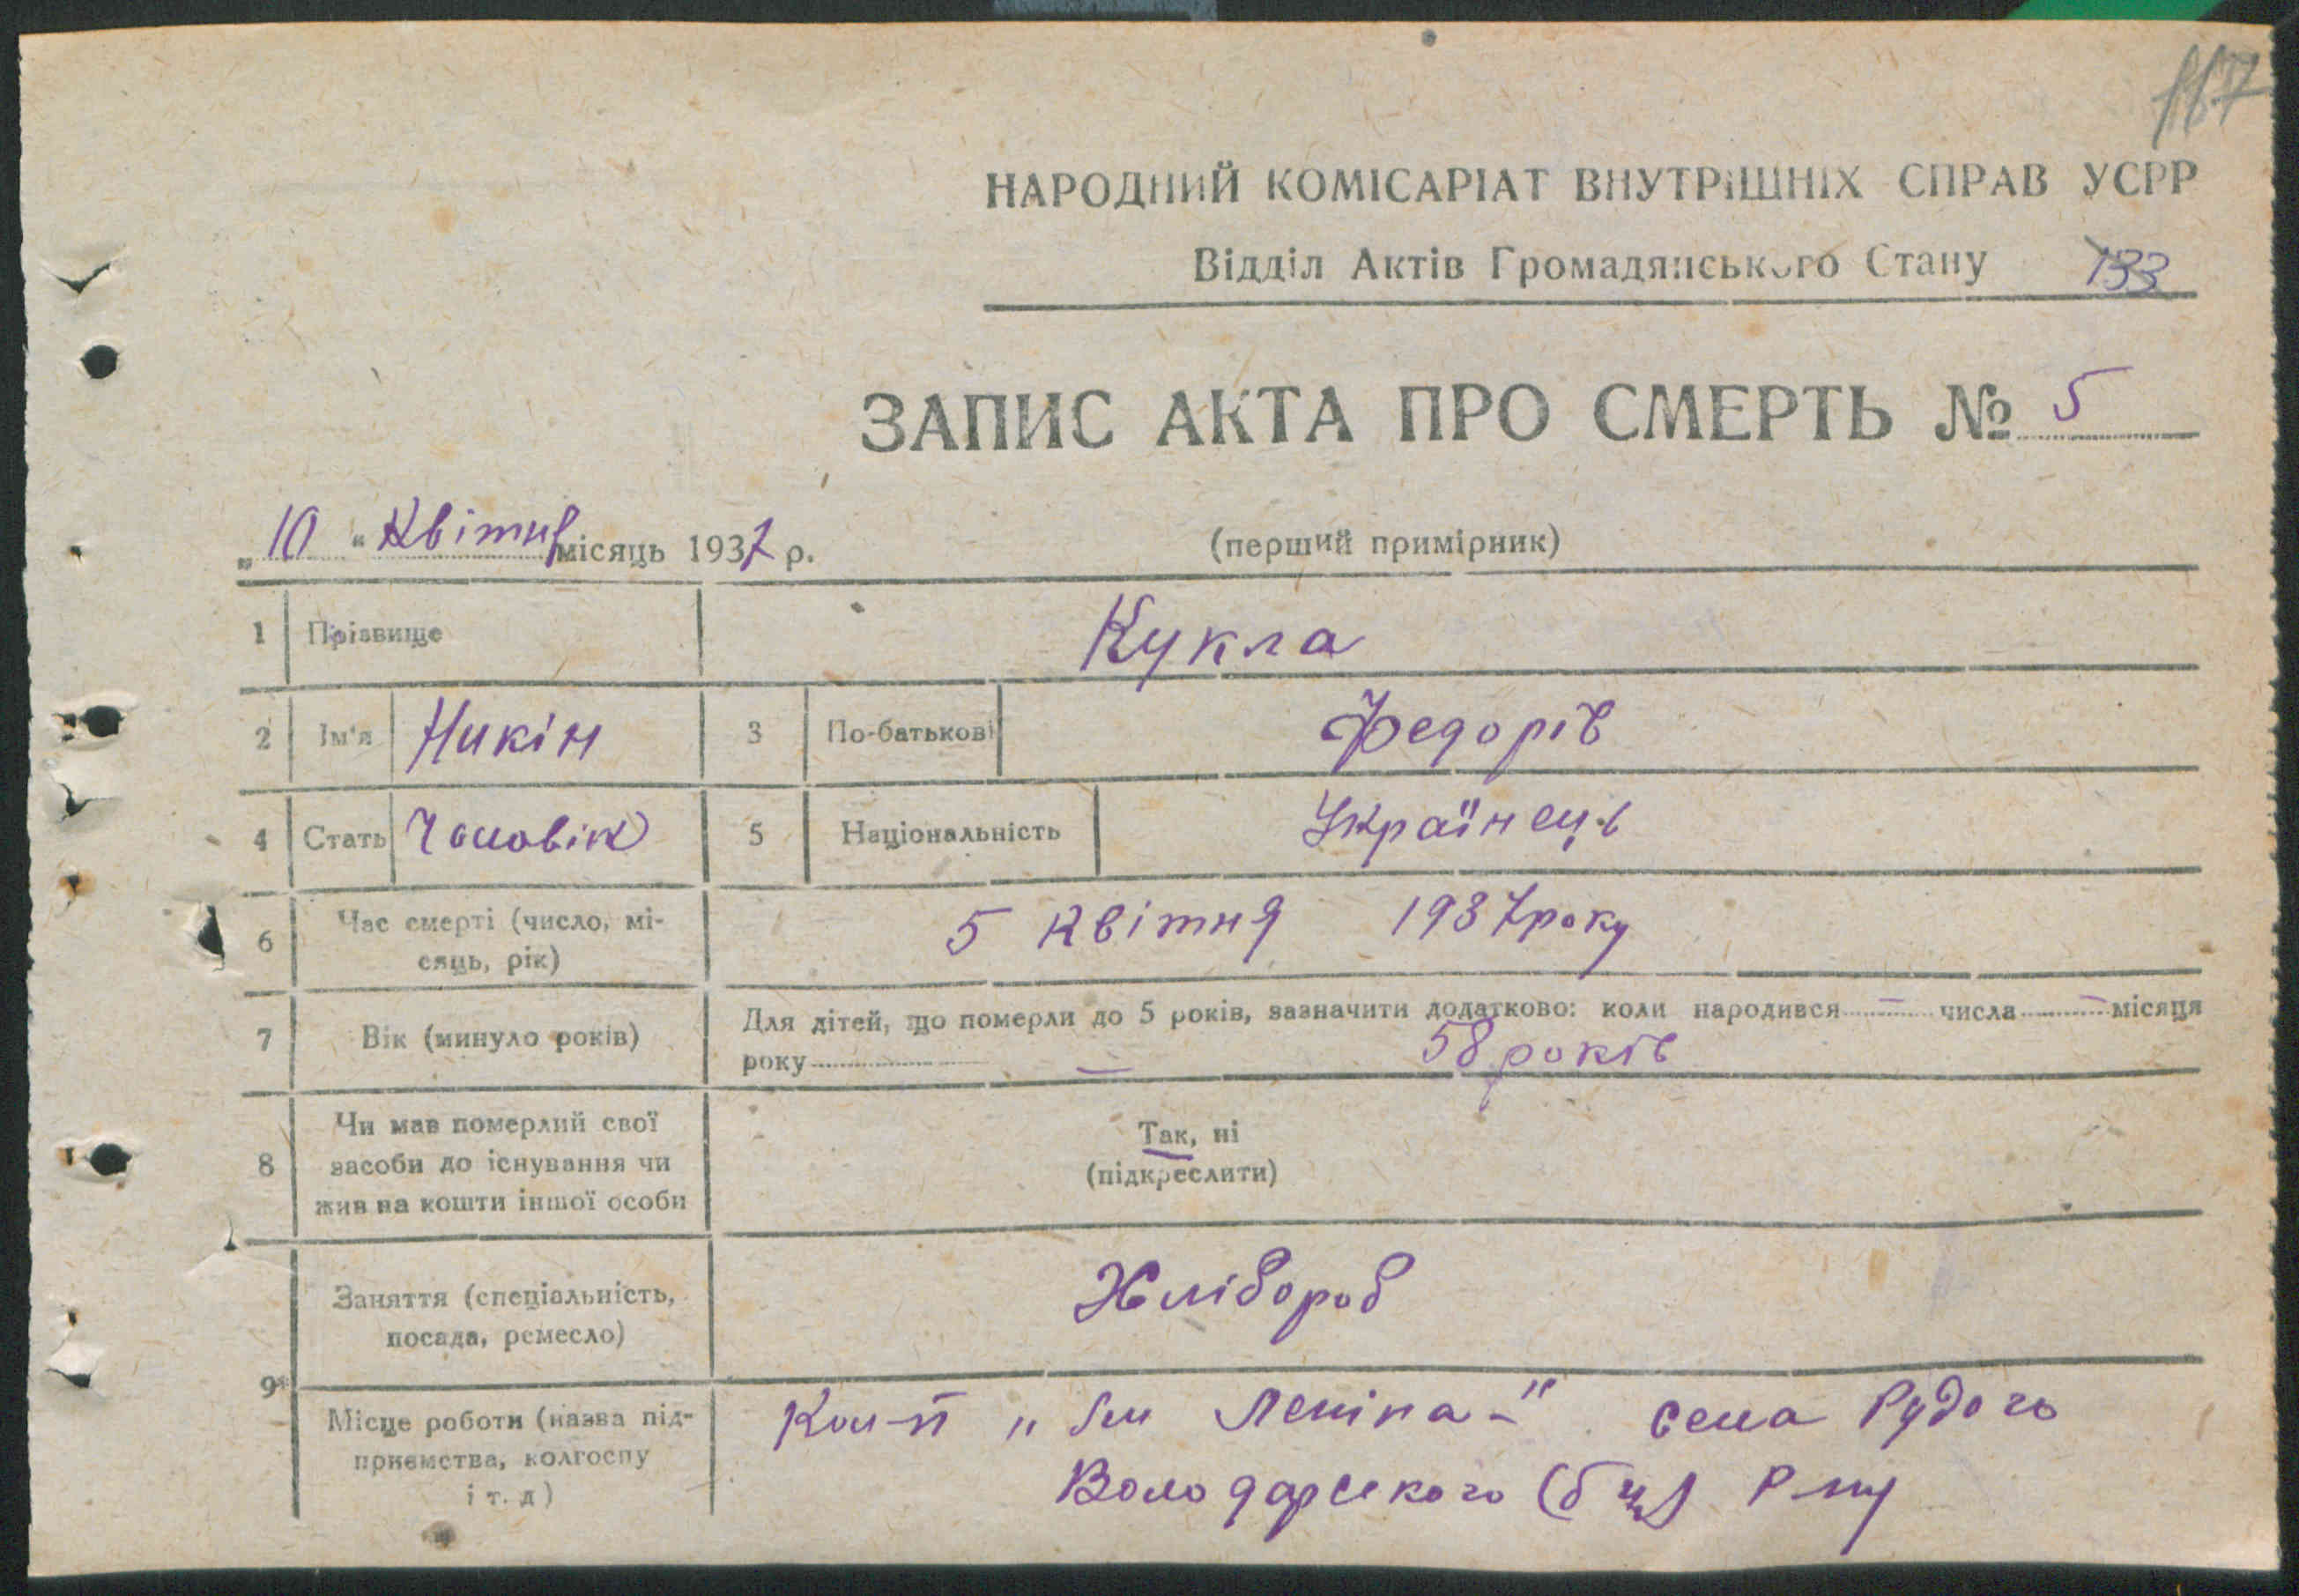 117
НАРОДНИЙ КОМІСАРІАТ ВНУТРІШНІХ СПРАВ УСРР
Відділ Актів Громадянського Стану 133
ЗАПИС АКТА ПРО СМЕРТЬ № 5
„ 10 “ Квітня місяць 1937 р. (перший примірник)
1 Прізвище Кукла
2 Ім'я Никін 3 По-батькові Федорів
4 Стать Чоловік 5 Національність Українець
6 Час смерті (число, мі-
сяць, рік) 5 Квітня 1937 року
7 Вік (минуло років) Для дітей, що померли до 5 років, зазначити додатково: коли народився — числа — місяця
року — 58 років
8 Чи мав померлий свої
засоби до існування чи
жив на кошти іншої особи
Так, ні
(підкреслити)
9
Заняття (спеціальність,
посада, ремесло) Хлібороб
Місце роботи (назва під-
приємства, колгоспу
і т. д) Кол-п „Ім Леніна-" села Рудого
Володарського (бцр) Р-ну